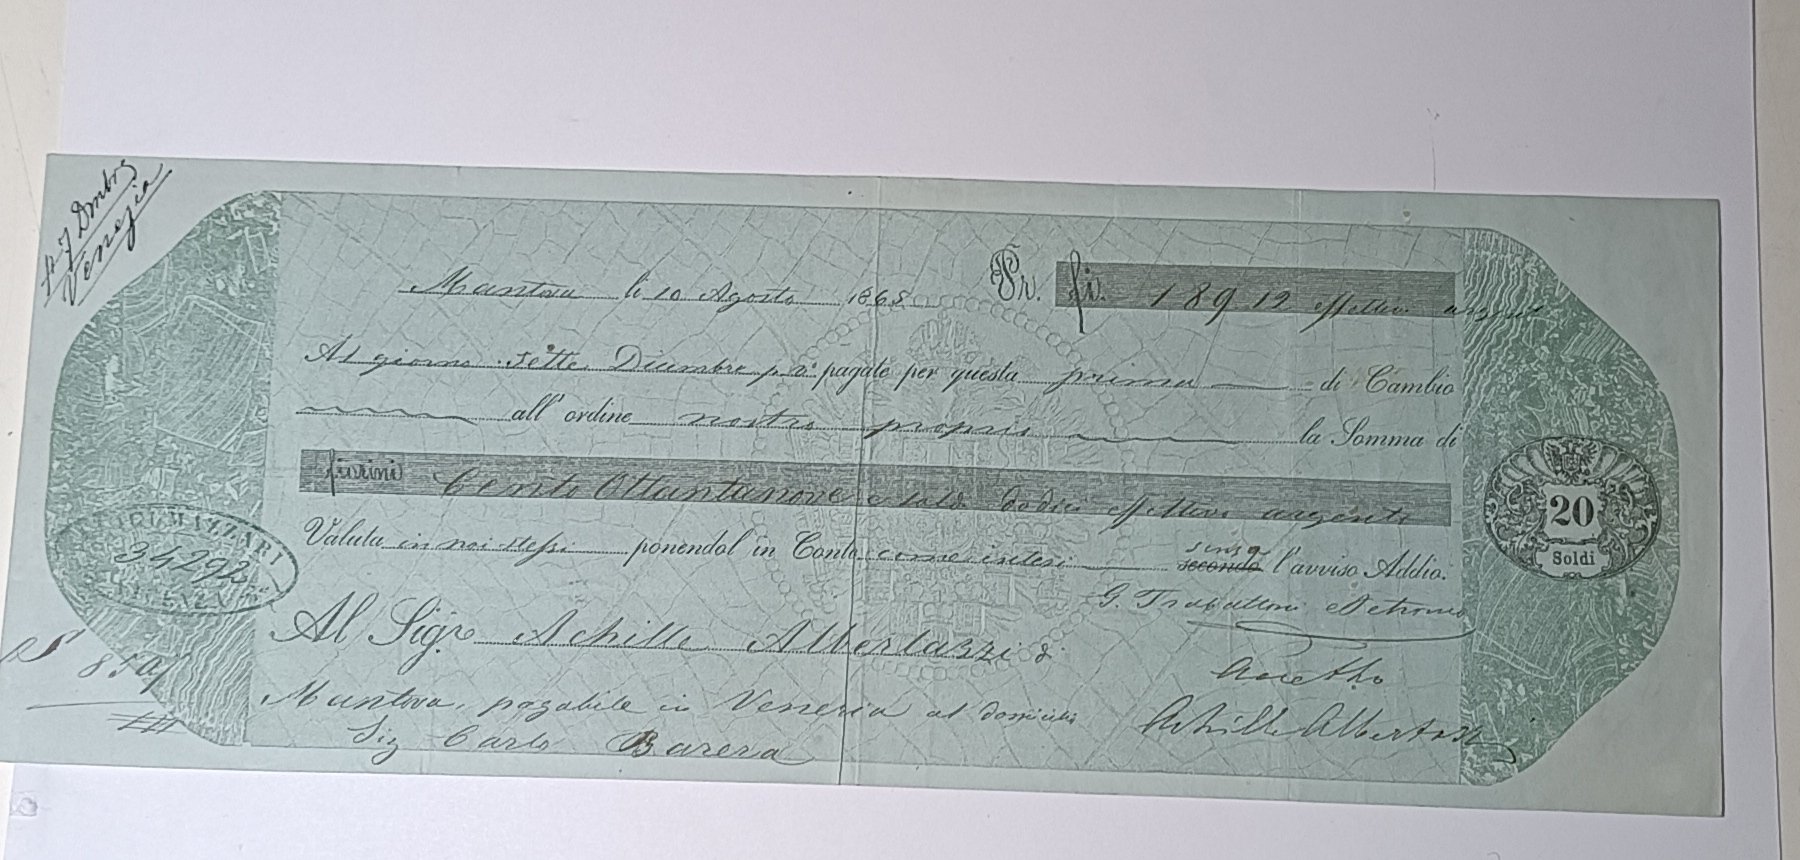 7 Dmbre
Venezia
Mantova li 10 Agosto 1868 Pr. fi. 189.12 effettivi argento
Al giorno Sette Dicembre p. vo. pagate per questa prima di Cambio
all' ordine nostro proprio la Somma di
fiorini Cento Ottantanove e soldi dodici effettivi argento
Valuta in noi stessi ponendol in Conto come intesi senza secondo l'avviso Addio.
34292
20
Soldi
G. Trabattoni e Petromer
Al Sigr. Achille Albertazzi di
Accetto
Mantova, pagabile in Venezia al domicilio
Achille Albertazzi
Sig Carlo Barera